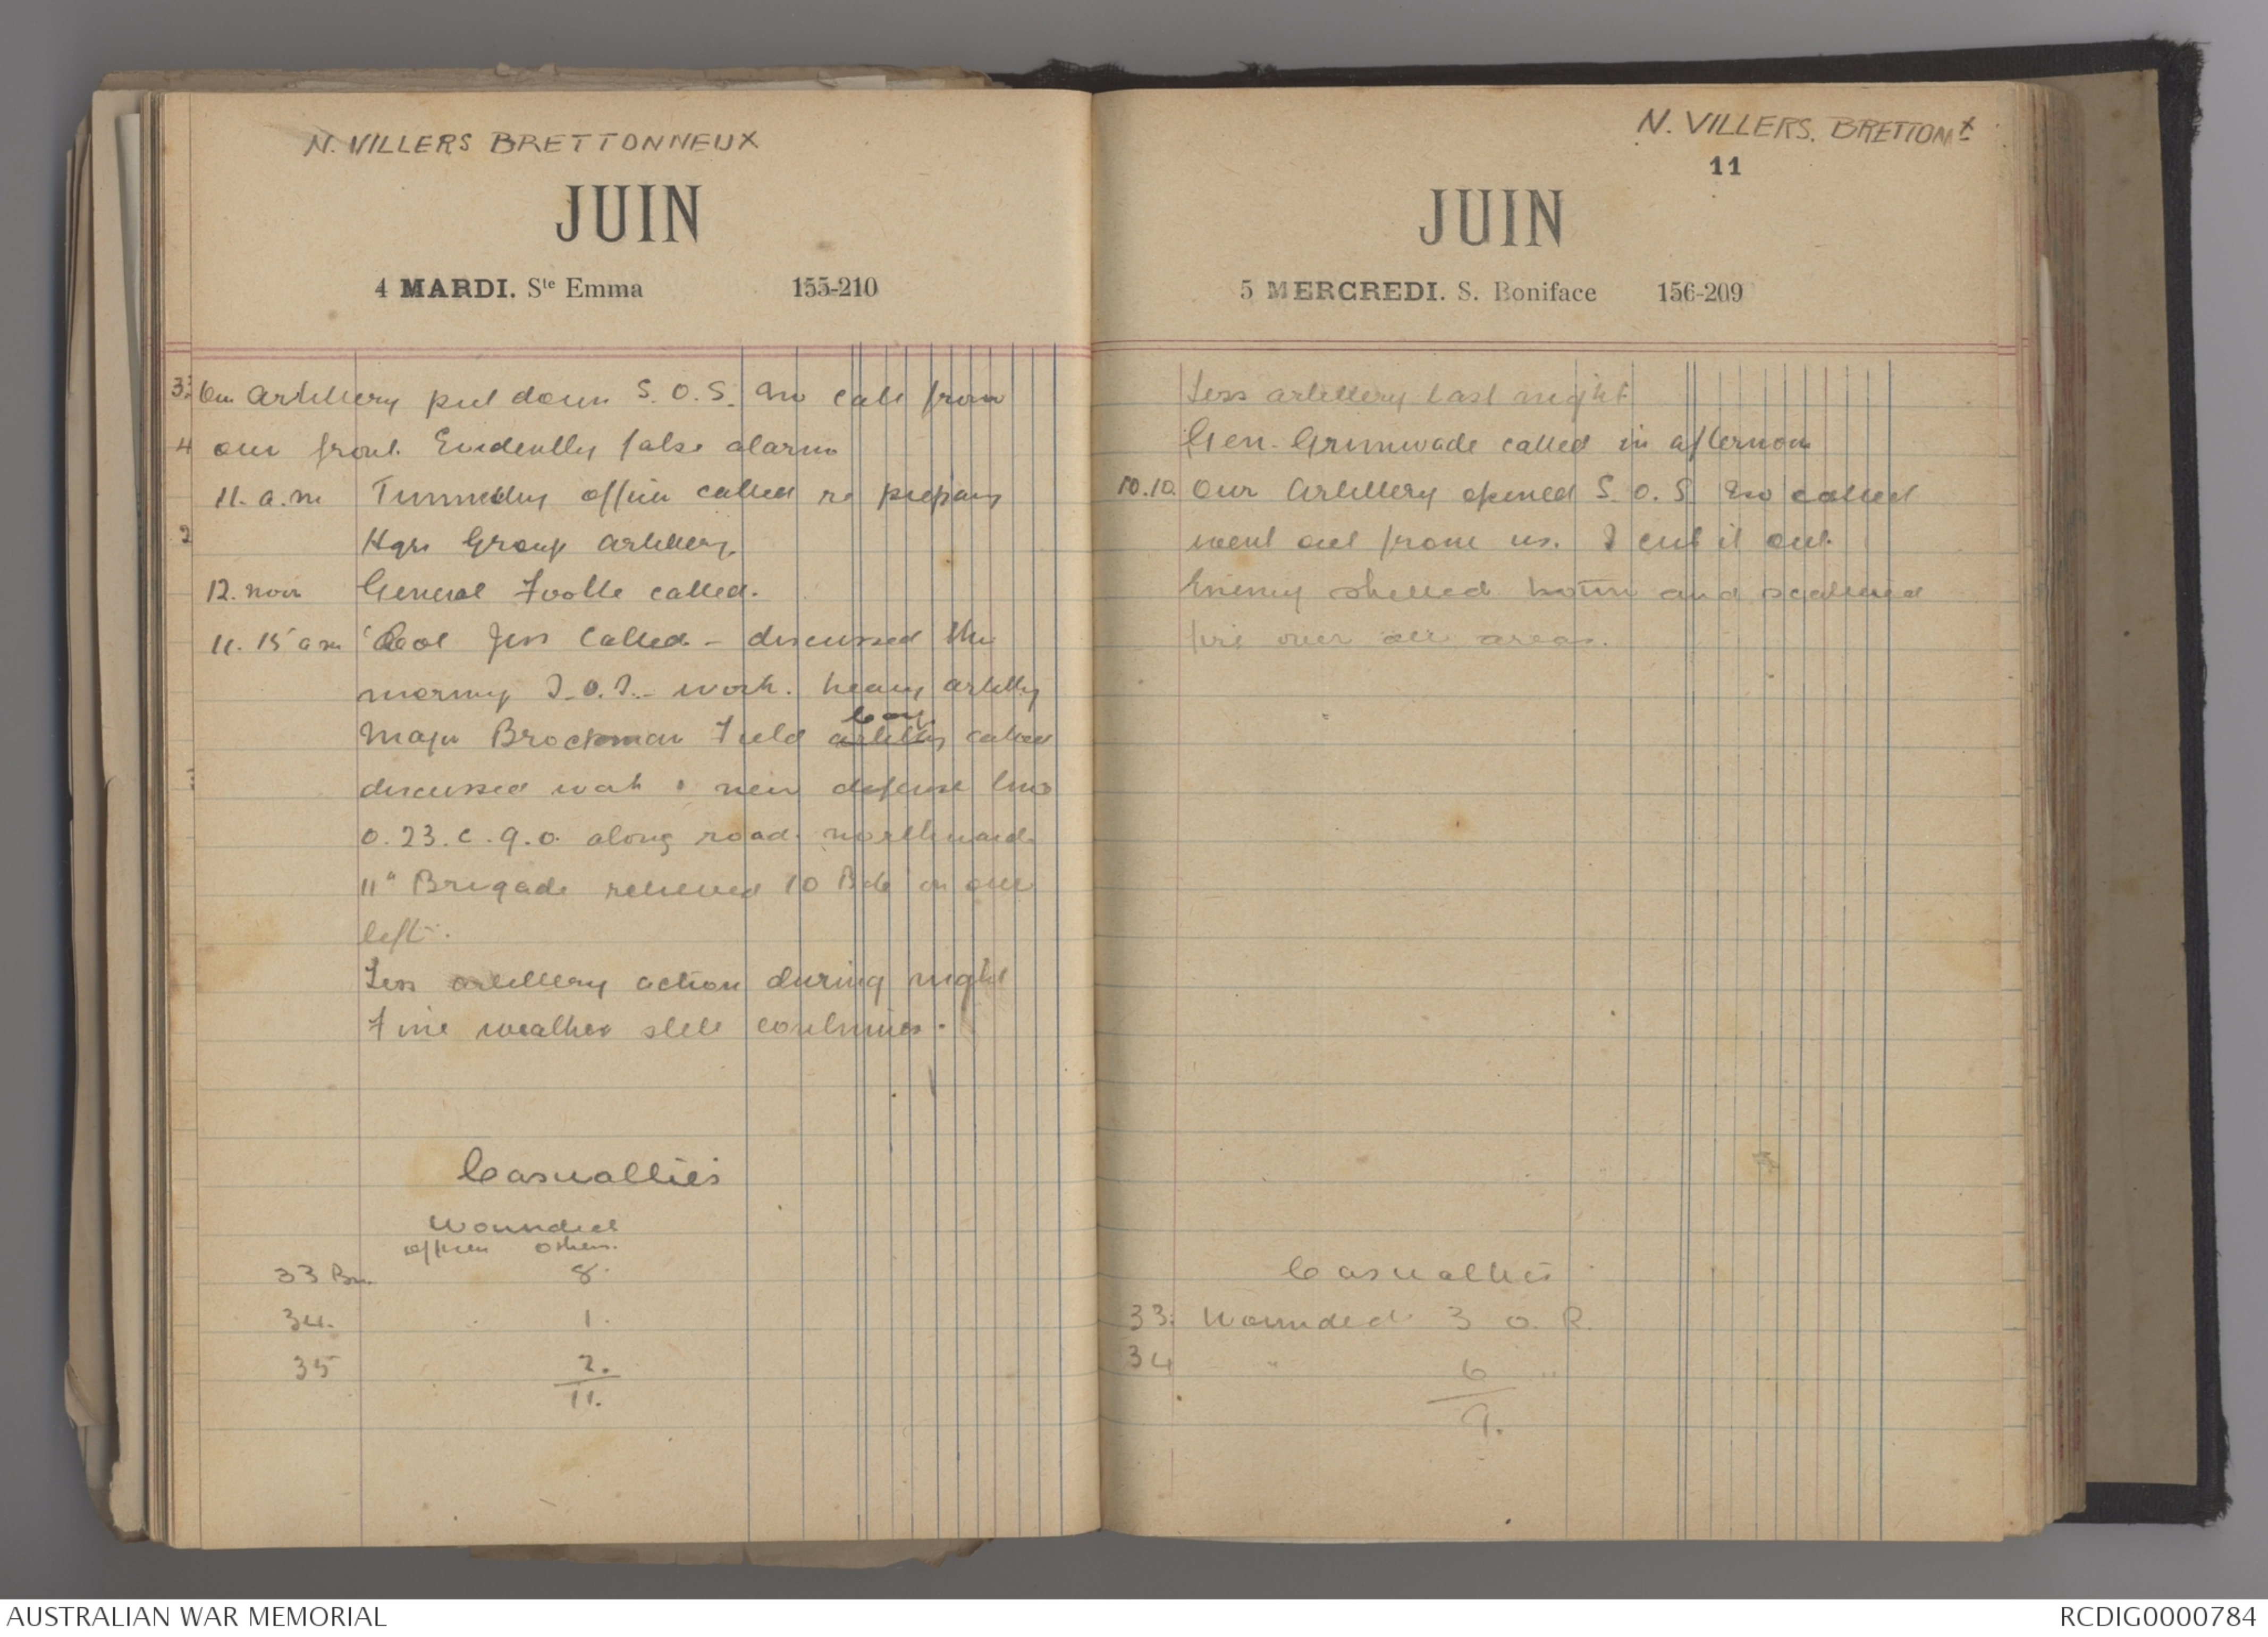 N. VILLERS BRETTONNEUX
JUIN
4 MARDI. Ste Emma 155-210
Our Artillery put down S.O.S. No call from
our front. Evidently false alarm
11. a.m Tunnelling officer called re preparing
Hqrs Group Artillery.
12. noon General called.
11.15 am Col Jess Called - discussed the
morning work. heavy artillery
Major Brockman Field artillery Coy. called
discussed work new defense line
O.23.c.9.0. along road northward.
11th Brigade relieved 10 Bde on our
left.
Less artillery action during night
Fine weather still continues.
Casualties
Wounded
officers others.
33 Bn. 8.
34. 1.
35 2.
11.
N. VILLERS. BRETTONX
11
JUIN
5 MERCREDI. S. Boniface 156-209
Less artillery last night
Gen. Grimwade called in afternoon
10.10. Our Artillery opened S.O.S. No called
went out from us. I cut it out.
Enemy shelled and scattered
fire over all areas.
Casualties
33. Wounded 3 O.R.
34 " 6 "
9.
AUSTRALIAN WAR MEMORIAL
RCDIG0000784